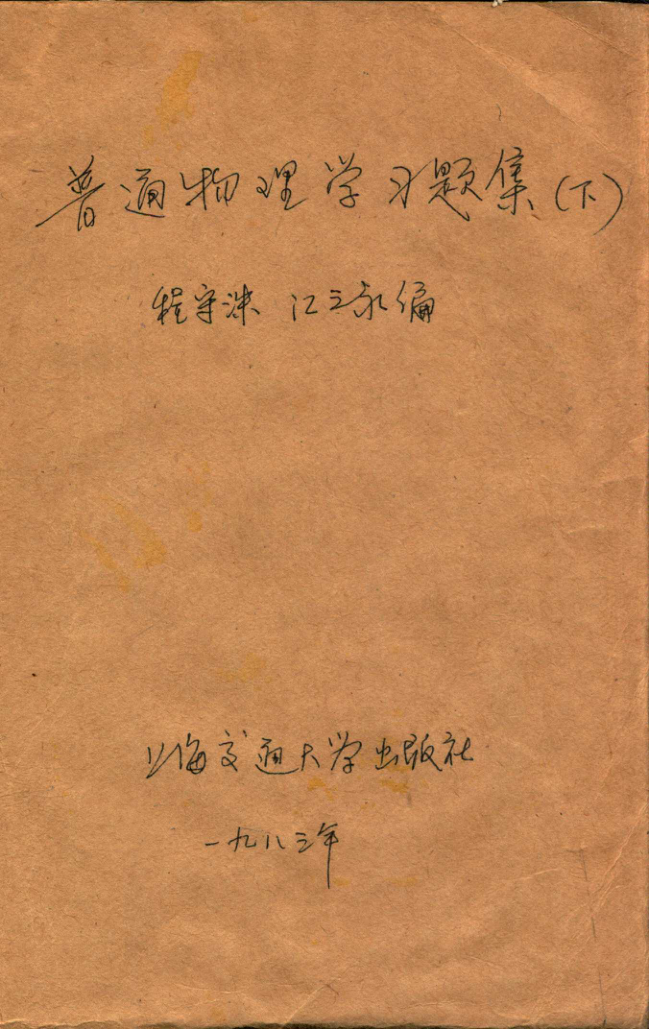 普通物理学习题集(下)
程守洙 江之永编
上海交通大学出版社
一九八三年